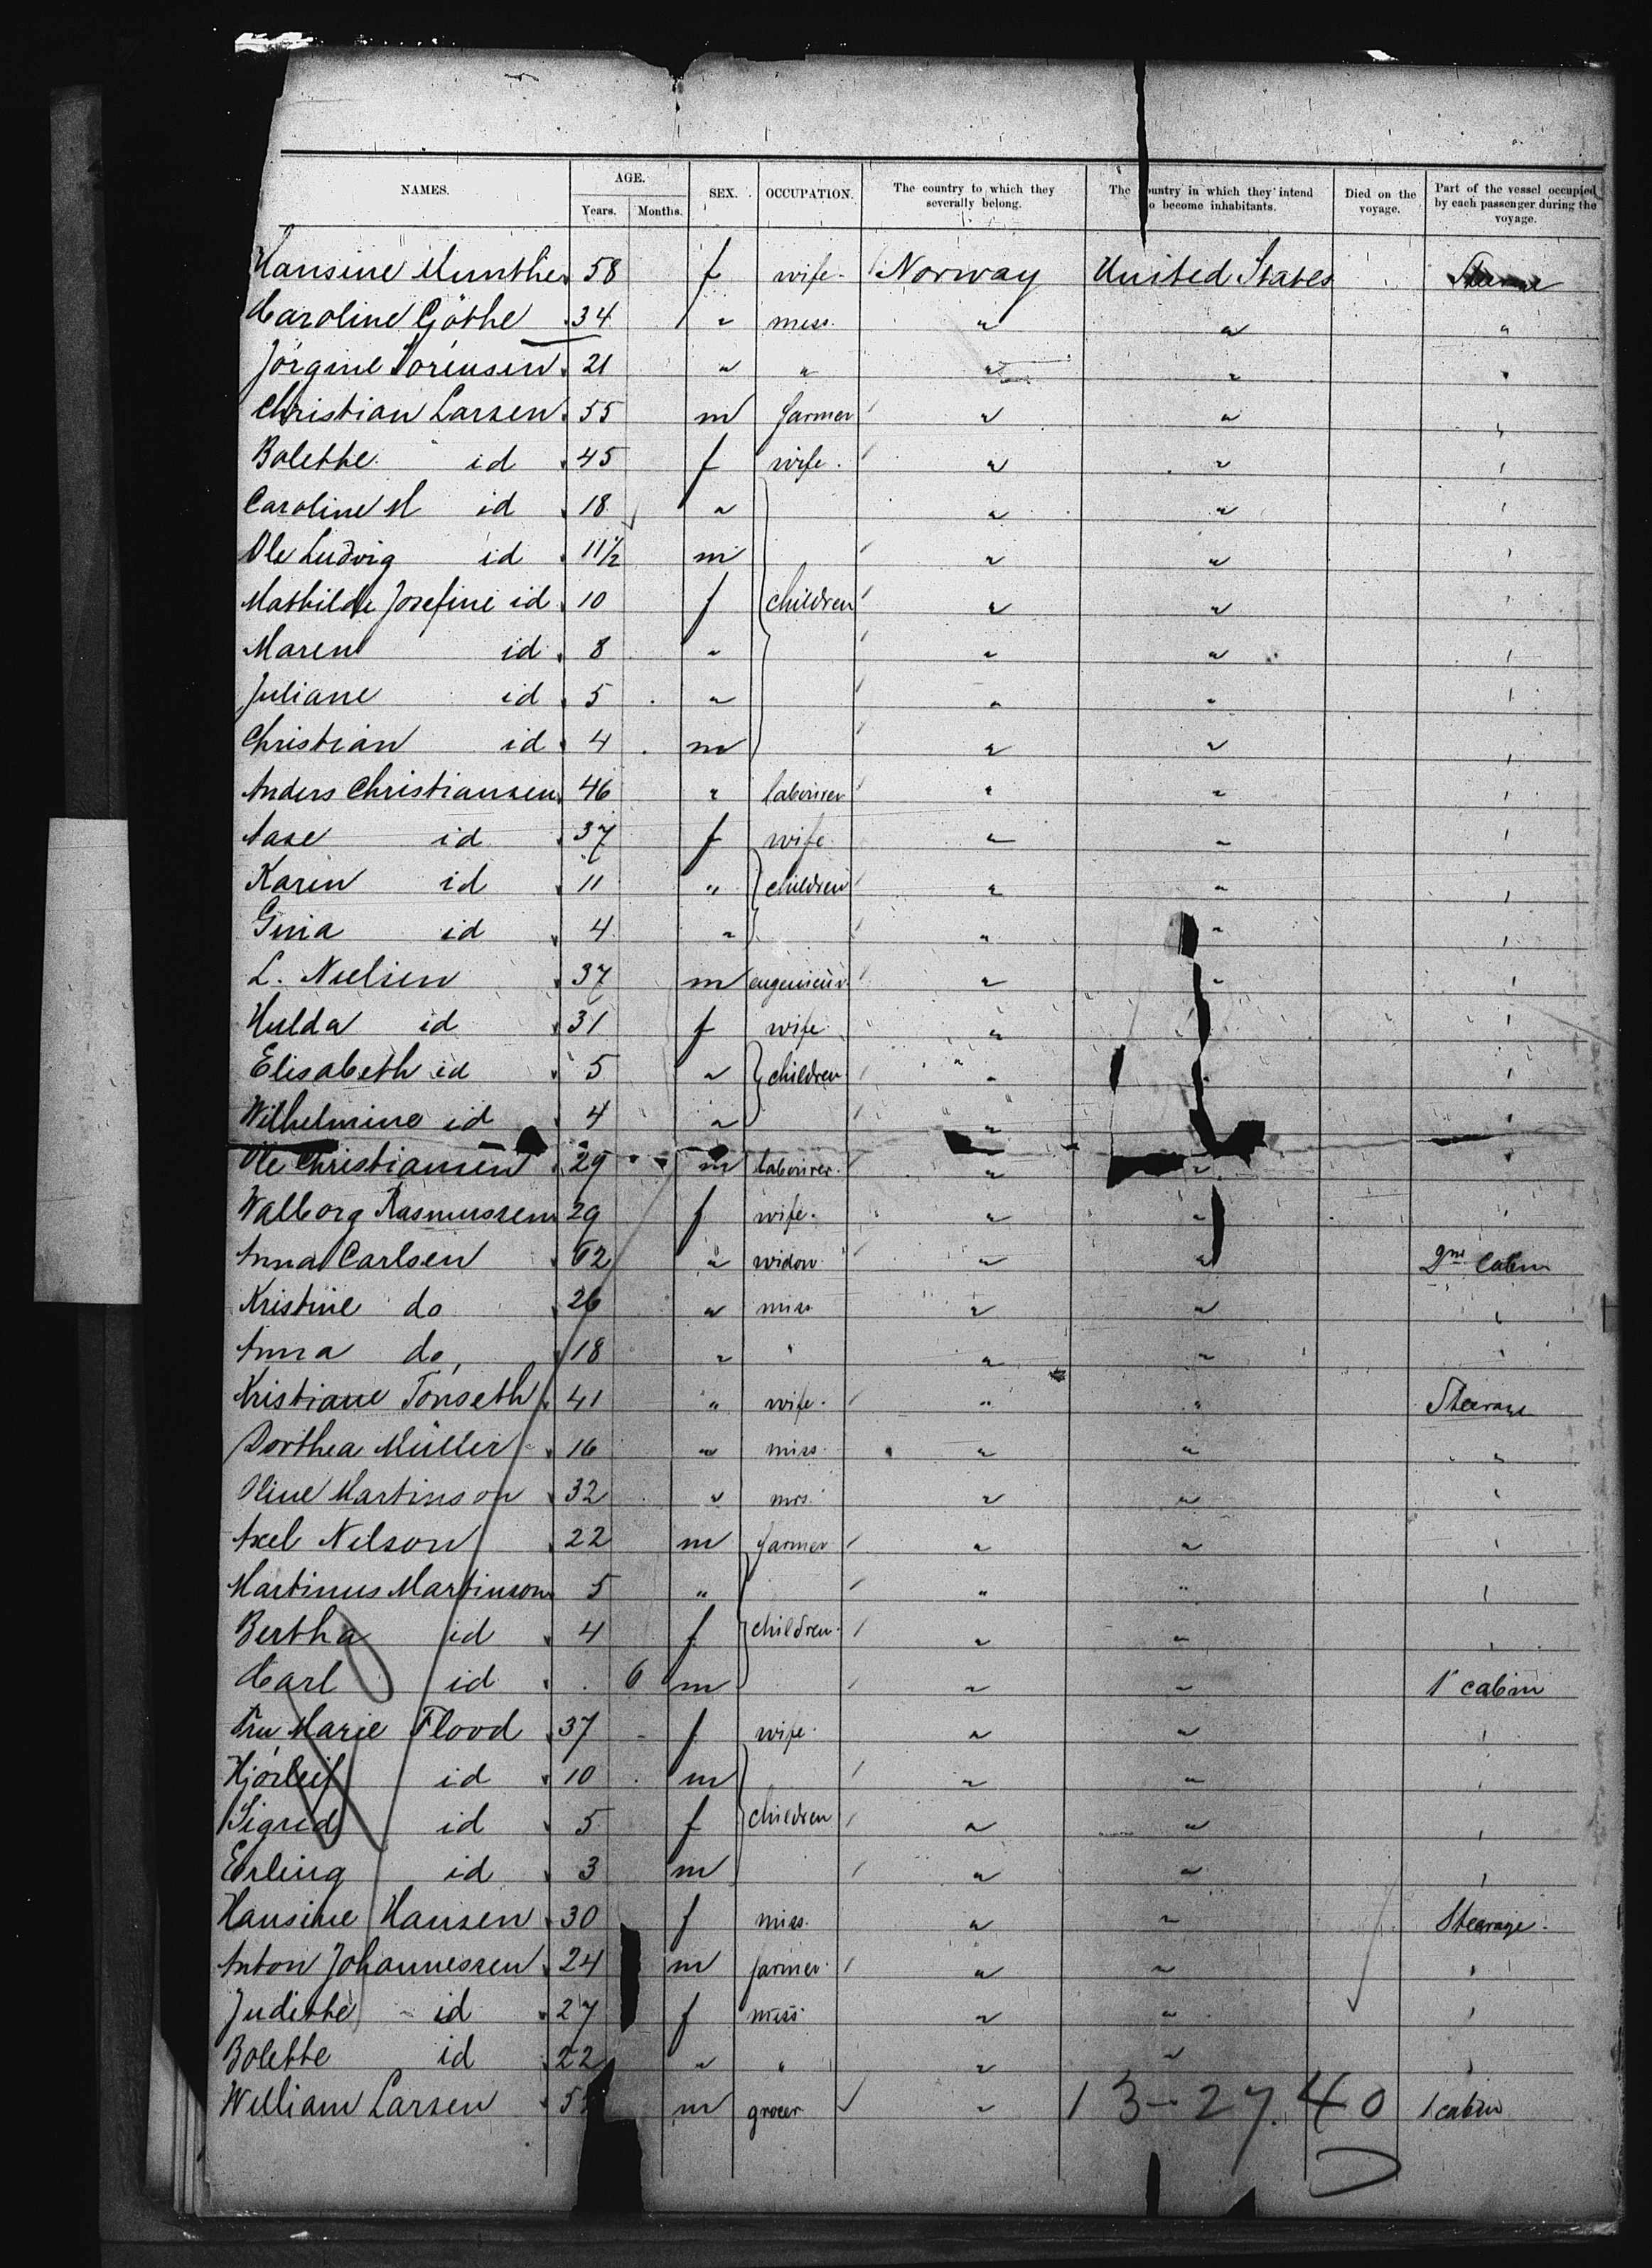 NAMES. AGE. SEX. OCCUPATION. The country to which they severally belong. The country in which they intend to become inhabitants. Died on the voyage. Part of the vessel occupied by each passenger during the voyage.
Years. Months.
Hansine Munther 58 f wife Norway United States
Caroline Göthe 34 " miss " " "
Jörgine Sörensen 21 " " " " "
Christian Larsen 55 m farmer " " "
Bolette id 45 f wife " " "
Caroline M id 18 " " " "
Ole Ludvig id 11½ m " " "
Mathilde Josefine id 10 f children " " "
Maren id 8 " " " "
Juliane id 5 " " " "
Christian id 4 m " " "
Anders Christiansen 46 " labourer " " "
Aase id 37 f wife " " "
Karen id 11 " children " " "
Gina id 4 " " " "
L. Nielsen 37 m engenieur " " "
Hulda id 31 f wife " "
Elisabeth id 5 " children " " "
Wilhelmine id 4 " " "
Ole Christiansen 29 m labourer " " "
Walborg Rasmussen 29 f wife " " "
Anna Carlsen 62 " widow " " 2nd Cabin
Kristine do 26 " miss " " "
Anna do 18 " " " " "
Kristiane Tönseth 41 " wife " " Steerage
Dorthea Müller 16 " miss " " "
Oline Martinson 32 " mrs. " " "
Axel Nilson 22 m farmer " " "
Martinus Martinson 5 " " " "
Bertha id 4 f children " " "
Carl id 6 m " " 1' cabin
Fru Marie Flood 37 f wife " " "
Hjörleif id 10 m " " "
Sigrid id 5 f children " " "
Erling id 3 m " " "
Hansine Hansen 30 f miss " " Steerage
Anton Johannessen 24 m farmer " " "
Judithe id 27 f miss " " "
Bolette id 22 " " " " "
William Larsen m grocer " 13-27. 40 1 cabin